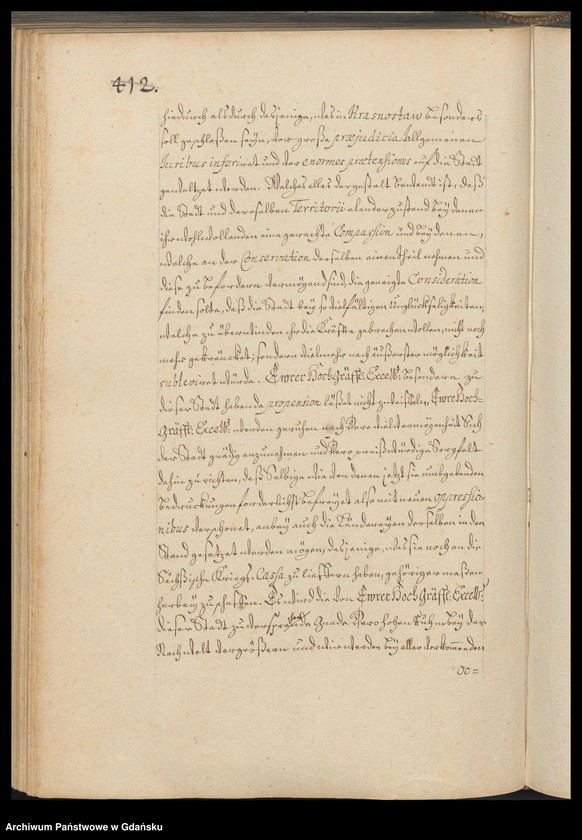 412.
hiedurch als durch dasjenige, was in Krasnostaw besonders
soll geschloßen seyn, vor große præjudicia Allgemeinen
Juribus inferiret und vor enormes prætensiones auf die Stadt
gewaltzet werden. Welches alles dergestalt bewandt ist, daß
die Stadt und derselben Territorii elender zustand bey denen
ihro wohlwollenden eine gerechte Compassion und bey denen,
welche an der Conservation derselben einen theil nehmen und
diese zu befordern vermögend sind, die geneigte Consideration
finden solte, daß die Stadt bey so vielfältigen Unglückseligkeiten,
welche zu überwinden ihr die Kräfte gebrechen wollen, nicht noch
mehr gekräncket; sondern vielmehr nach äußerster möglichkeit
subleviret würde. Ewrer HochGräffl: Excell: besondern zu
dieser Stadt habende propension läßet nicht zweifeln, Ewre Hoch-
Gräffl: Excell: werden geruhen nach Dero vielvermögenheit Sich
der Stadt gnädig anzunehmen und Dero preißwürdige Sorgfalt
dahin zu richten, daß Selbige wie von denen jetzt sie umbgebenden
Bedruckungen forderlichst befreyet also mit neuen oppressio-
nibus verschonet, anbey auch die Ländereyen derselben in den
Stand gesetzet werden mögen, dasjenige, was sie noch an die
Sächßische Kriegs-Cassa zu lieffern haben, gehöriger maßen
herbey zu schaffen. Es wird die von Ewrer HochGräffl: Excell:
dieser Stadt zu Gnade Dero hohen Ruhm bey der
Nachwelt vergrößern und wir werden bey aller vorkommenden
oc=
Archiwum Państwowe w Gdańsku